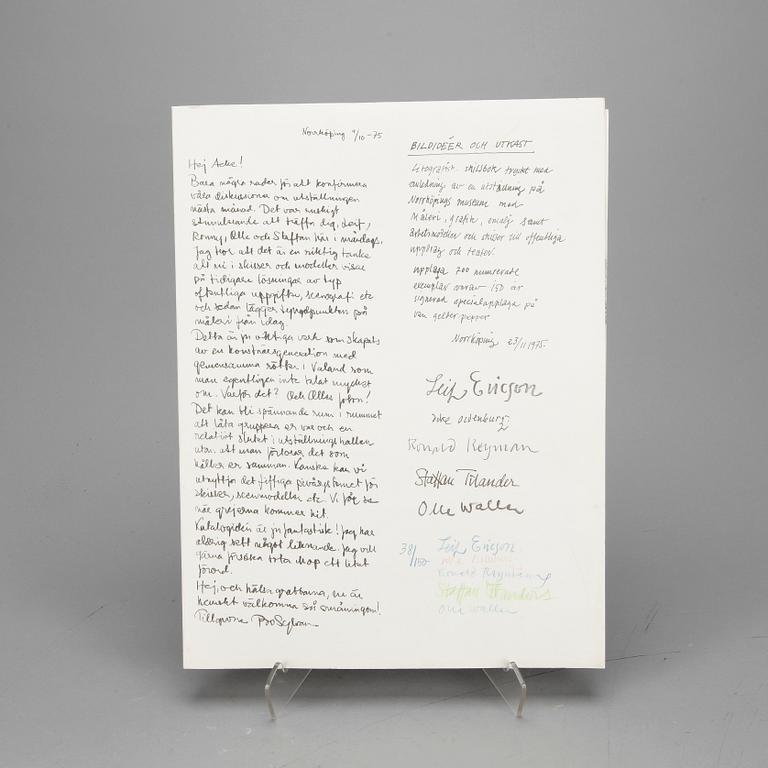 Norrköping 9/10 -75
Hej Acke!
Bara några rader för att konfirmera
våra diskussioner om utställningen
nästa månad. Det var enkligt
stimulerande att träffa dig, Leif,
Ronny, Olle och Staffan här i måndags.
Jag tror att det är en riktig tanke
att ni i skisser och modeller visar
på tidigare lösningar av typ
offentliga uppgifter, scenografi etc
och sedan lägger tyngdpunkten på
måleri från idag.
Detta är ju viktiga verk som skapats
av en konstnärsgeneration med
gemensamma rötter i Valand som
man egentligen inte talat mycket
om. Varför det? Och Olles foton!
Det kan bli spännande rum i rummet
att låta gruppera er var och en
relativt slutet i utställningshallen
utan att man förlorar det som
håller er samman. Kanske kan vi
utnyttja det fiffiga systemet för
skisser, scenmodeller etc. Vi får se
när grejorna kommer hit.
Katalogidén är ju fantastisk! Jag har
aldrig sett något liknande. Jag vill
gärna försöka trota ihop ett litet
förord.
Hej, och hälsa grabbarna, ni är
hemskt välkomna så småningom!
Tillgivne Bo Sylvan
BILDIDÉER OCH UTKAST
Litografisk skissbok tryckt med
anledning av en utställning på
Norrköpings museum med
Måleri, grafik, emalj samt
arbetsmodeller och skisser till offentliga
uppdrag och teater.
upplaga 700 numrerade
exemplar varav 150 är
signerad specialupplaga på
van gelder papper
Norrköping 23/11 1975.
Leif Ericson
Acke Oldenburg
Ronald Reyman
Staffan Tilander
Olle Wallin
38/150
Leif Ericson
Staffan Tilander
Olle Wallin